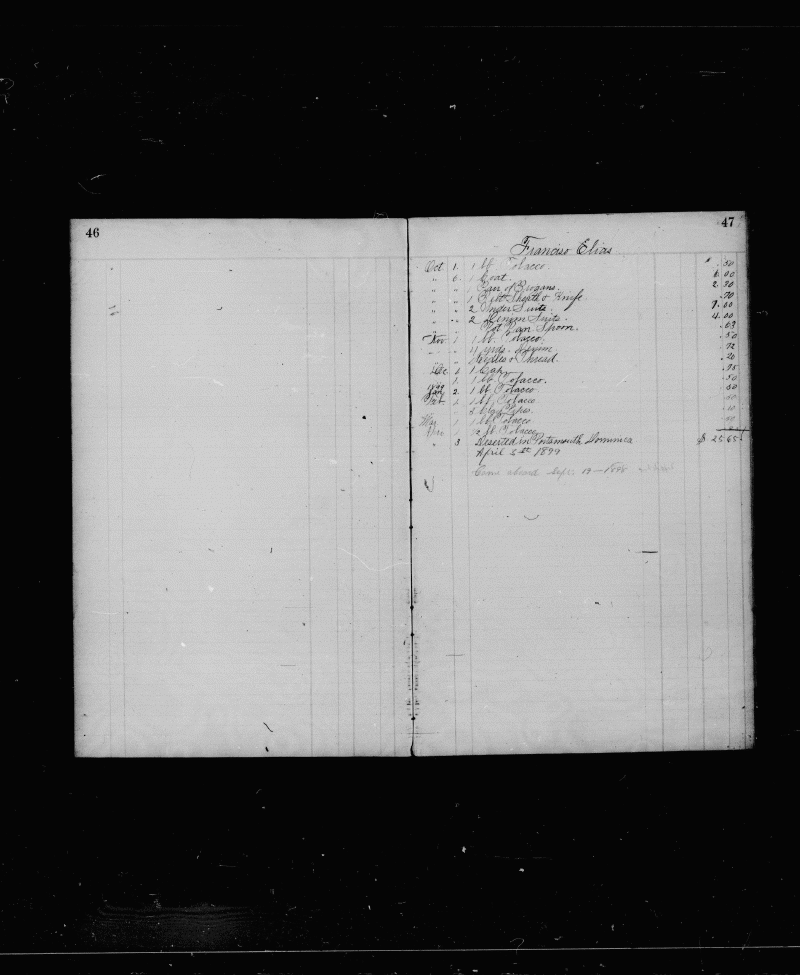 46
47
Franciso Elias
Oct 1. 1 lb Tobacco. .50
" 6. 1 Coat. 6.00
" " 1 Pair of Brogans.
" " 1 Belt Sheath & Knife. .70
" " 2 Under Suits. 7.00
" " 2 Denim Suits. 4.00
Pot Pan Spoon. .63
Nov 1 1 lb. Tobacco. .50
" 4 yrds. .72
" Needles & Thread. .20
Dec 1 Cap
1. 1 lb. Tobacco. .50
1899
Jan 2. 1 lb Tobacco. .50
1 lb Tobacco
3 Clay Pipes. .10
Mar 1 1 lb Tobacco .50
1/2 lb Tobacco
" 3 Deserted in Portsmouth Dominica $ 25.65
April 3rd 1899
Came aboard Sept. 19—1898